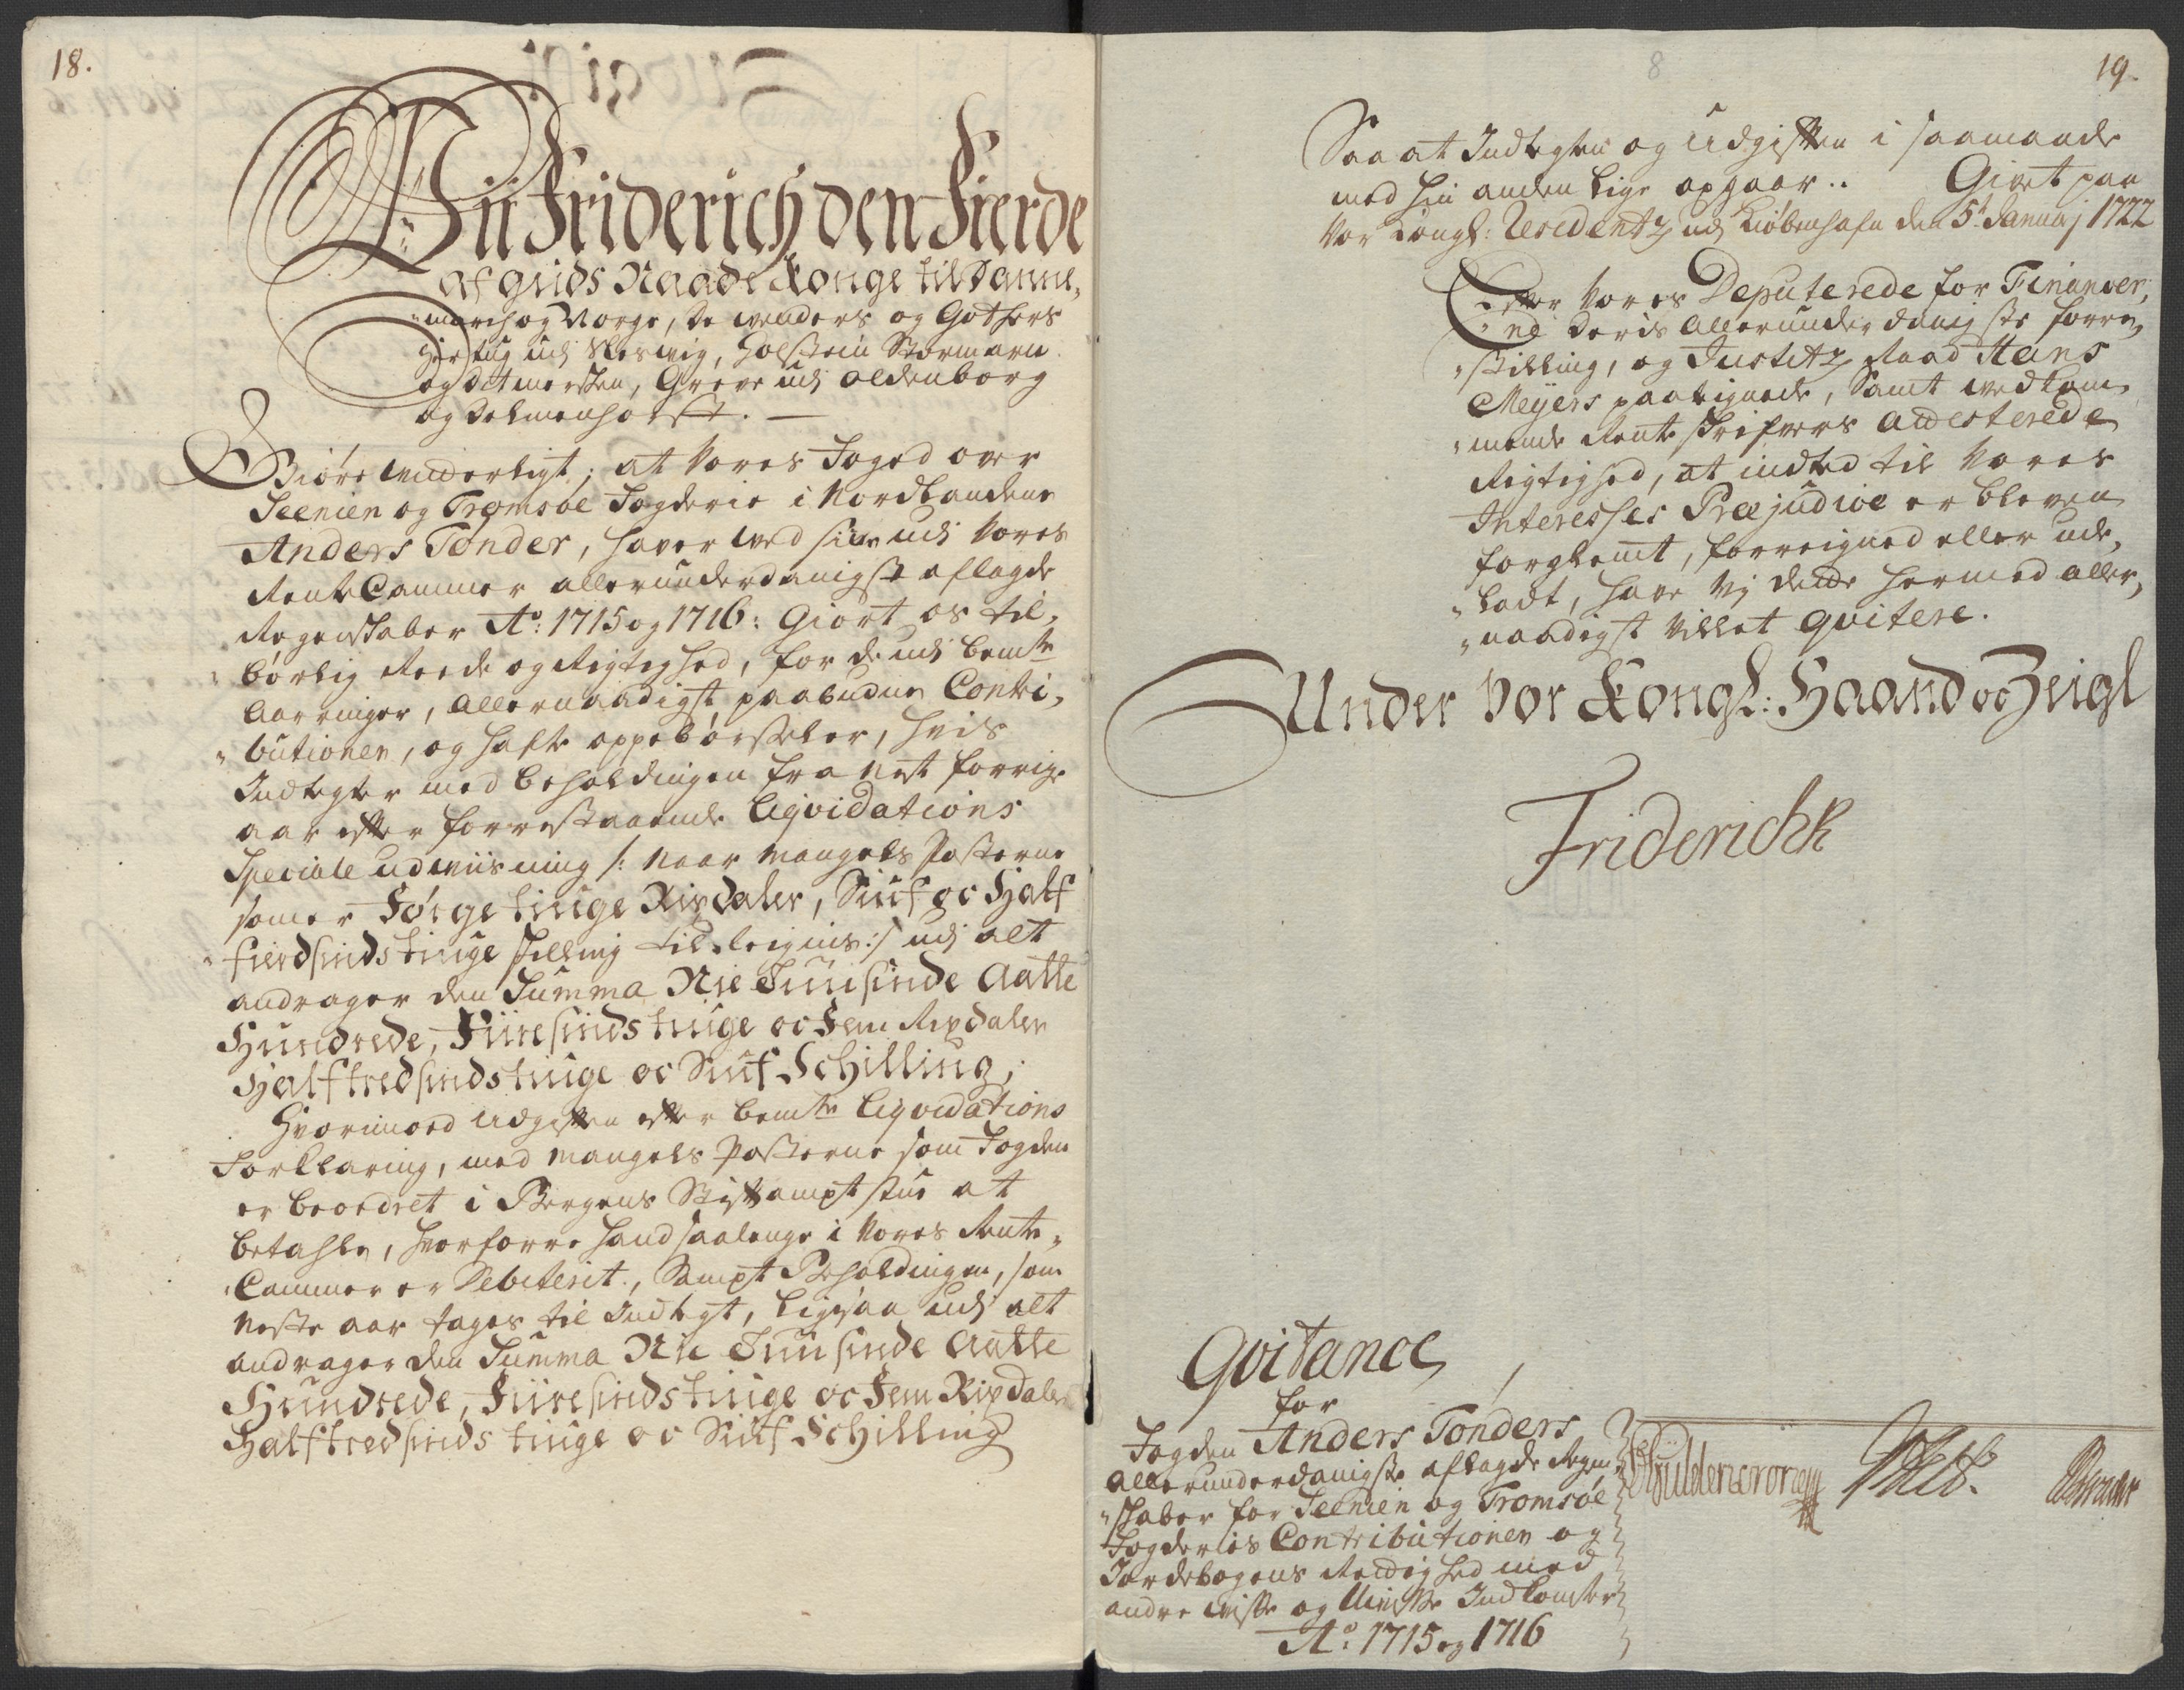 18.
Vii Friderich den Fierde
af Guds Naade Konge til Danne,
"march og Norge, de Wenders og Gothers
Hertug udj Sleswig, Holstein Stormarn
og Ditmersken, Greve udj Oldenborg
og Delmenhorst. —
Giøre Witterligt; at Vores Foged over
Seenien og Tromsøe Fogderie i Nordlandene
Anders Tonder, haver wed sine udj Vores
Rente Cammer allerunderdanigst aflagde
Regenskaber Ao: 1715 og 1716: Giort os til,
"børlig Reede og Rigtighed, for de udj bemte
Aaringer, Allernaadigst paabudne Contri,
"butioner, og hafte oppebørseler, hvis
Indtegter med beholdingen fra nest forrige
aar efter forrestaaende Liqvidations
Speciale udwiisning /: naar mangels Posterne
som er Førgetiuge Rixdaler, Siuf oc Half
"fierdsindstiuge skilling til leignis :/ udj alt
andrager den Summa Nie Tuusinde Aatte
Hundrede, Fiiresindstiuge oc Fem Rixdaler
Halftredsindstiuge oc Siuf Schilling;
Hvorimod Udgiften efter bemte Liqvidations
Forklaring, med mangels Posterne som Fogden
er beordret i Bergens Stiftampt stue at
betahle, hvorforre hand saalenge i Vores Rente,
"Cammer er Debiterit, Sampt Beholdingen, som
neste aar tages til Indtegt, ligesaa udj alt
andrager den Summa Nie Tuusinde Aatte
Hundrede, Fiiresindstiuge oc Fem Rixdaler
Halftredsindstiuge oc Siuf Schilling
8
19.
Saa at Indtegten og Udgiften i saamaade
med hin anden lige opgaar.. Givet paa
Vor Kongl: Residentz udj Kiøbenhafn den 5t. Januarj 1722
Efter Vores Deputerede for Financer,
"ne deris Allerunderdanigste forre,
"stilling, og Justitz Raad Hans
Meyers paategnede, Samt wedkom,
"mende Rente skrifvers Attesterede
Rigtighed, at indted til Vores
Interesses Præjudice er bleven
forglemt, forreigned eller ude,
"ladt, have Vj dette hermed aller,
"naadigst Villet qvitere.
Under Vor Kongl: Haand oc Zeigl
Friderich R
Qvitance
for
Fogden Anders Tonders
Allerunderdanigste aflagde Regen,
"skaber for Seenien og Tromsøe
Fogderies Contributioner og
Jordebogens Rettighed med
andre wisse og Uwisse Indkomster
Ao: 1715 og 1716